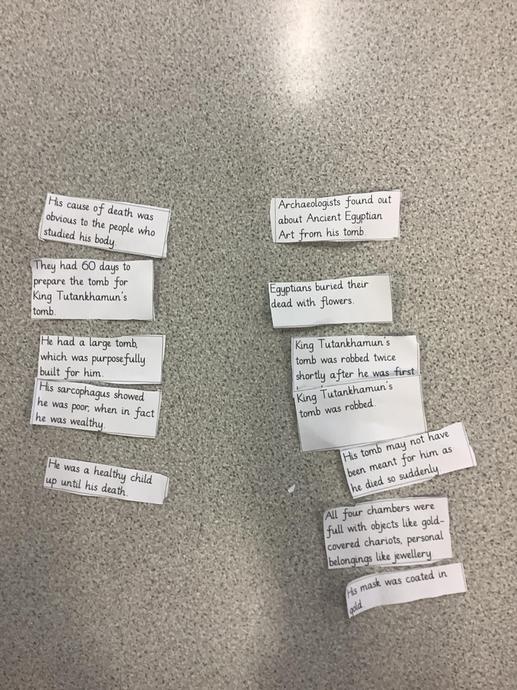 His cause of death was
obvious to the people who
studied his body.
They had 60 days to
prepare the tomb for
King Tutankhamun's
tomb.
He had a large tomb,
which was purposefully
built for him.
His sarcophagus showed
he was poor, when in fact
he was wealthy.
He was a healthy child
up until his death.
Archaeologists found out
about Ancient Egyptian
Art from his tomb.
Egyptians buried their
dead with flowers.
King Tutankhamun's
tomb was robbed twice
shortly after he was first
King Tutankhamun's
tomb was robbed.
His tomb may not have
been meant for him as
he died so suddenly
All four chambers were
full with objects like gold-
covered chariots, personal
belongings like jewellery
His mask was coated in
gold.